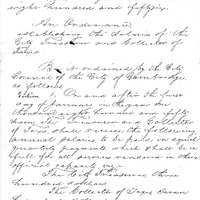 eight hundred and fifty six.
An Ordinance
establishing the Salaries of the
City Treasurer and Collector of
Taxes.
Be it ordained by the City
Council of the City of Cambridge,
as follows:
Section 1. On and after the first
day of January in the year one
thousand eight hundred and fifty
the Treasurer and Collector
of Taxes shall receive the following
annual salaries, to be paid in equal
quarterly payments, which shall be in
full for all services rendered in their
official capacity viz:
The City Treasurer, three
hundred dollars.
The Collector of Taxes seven